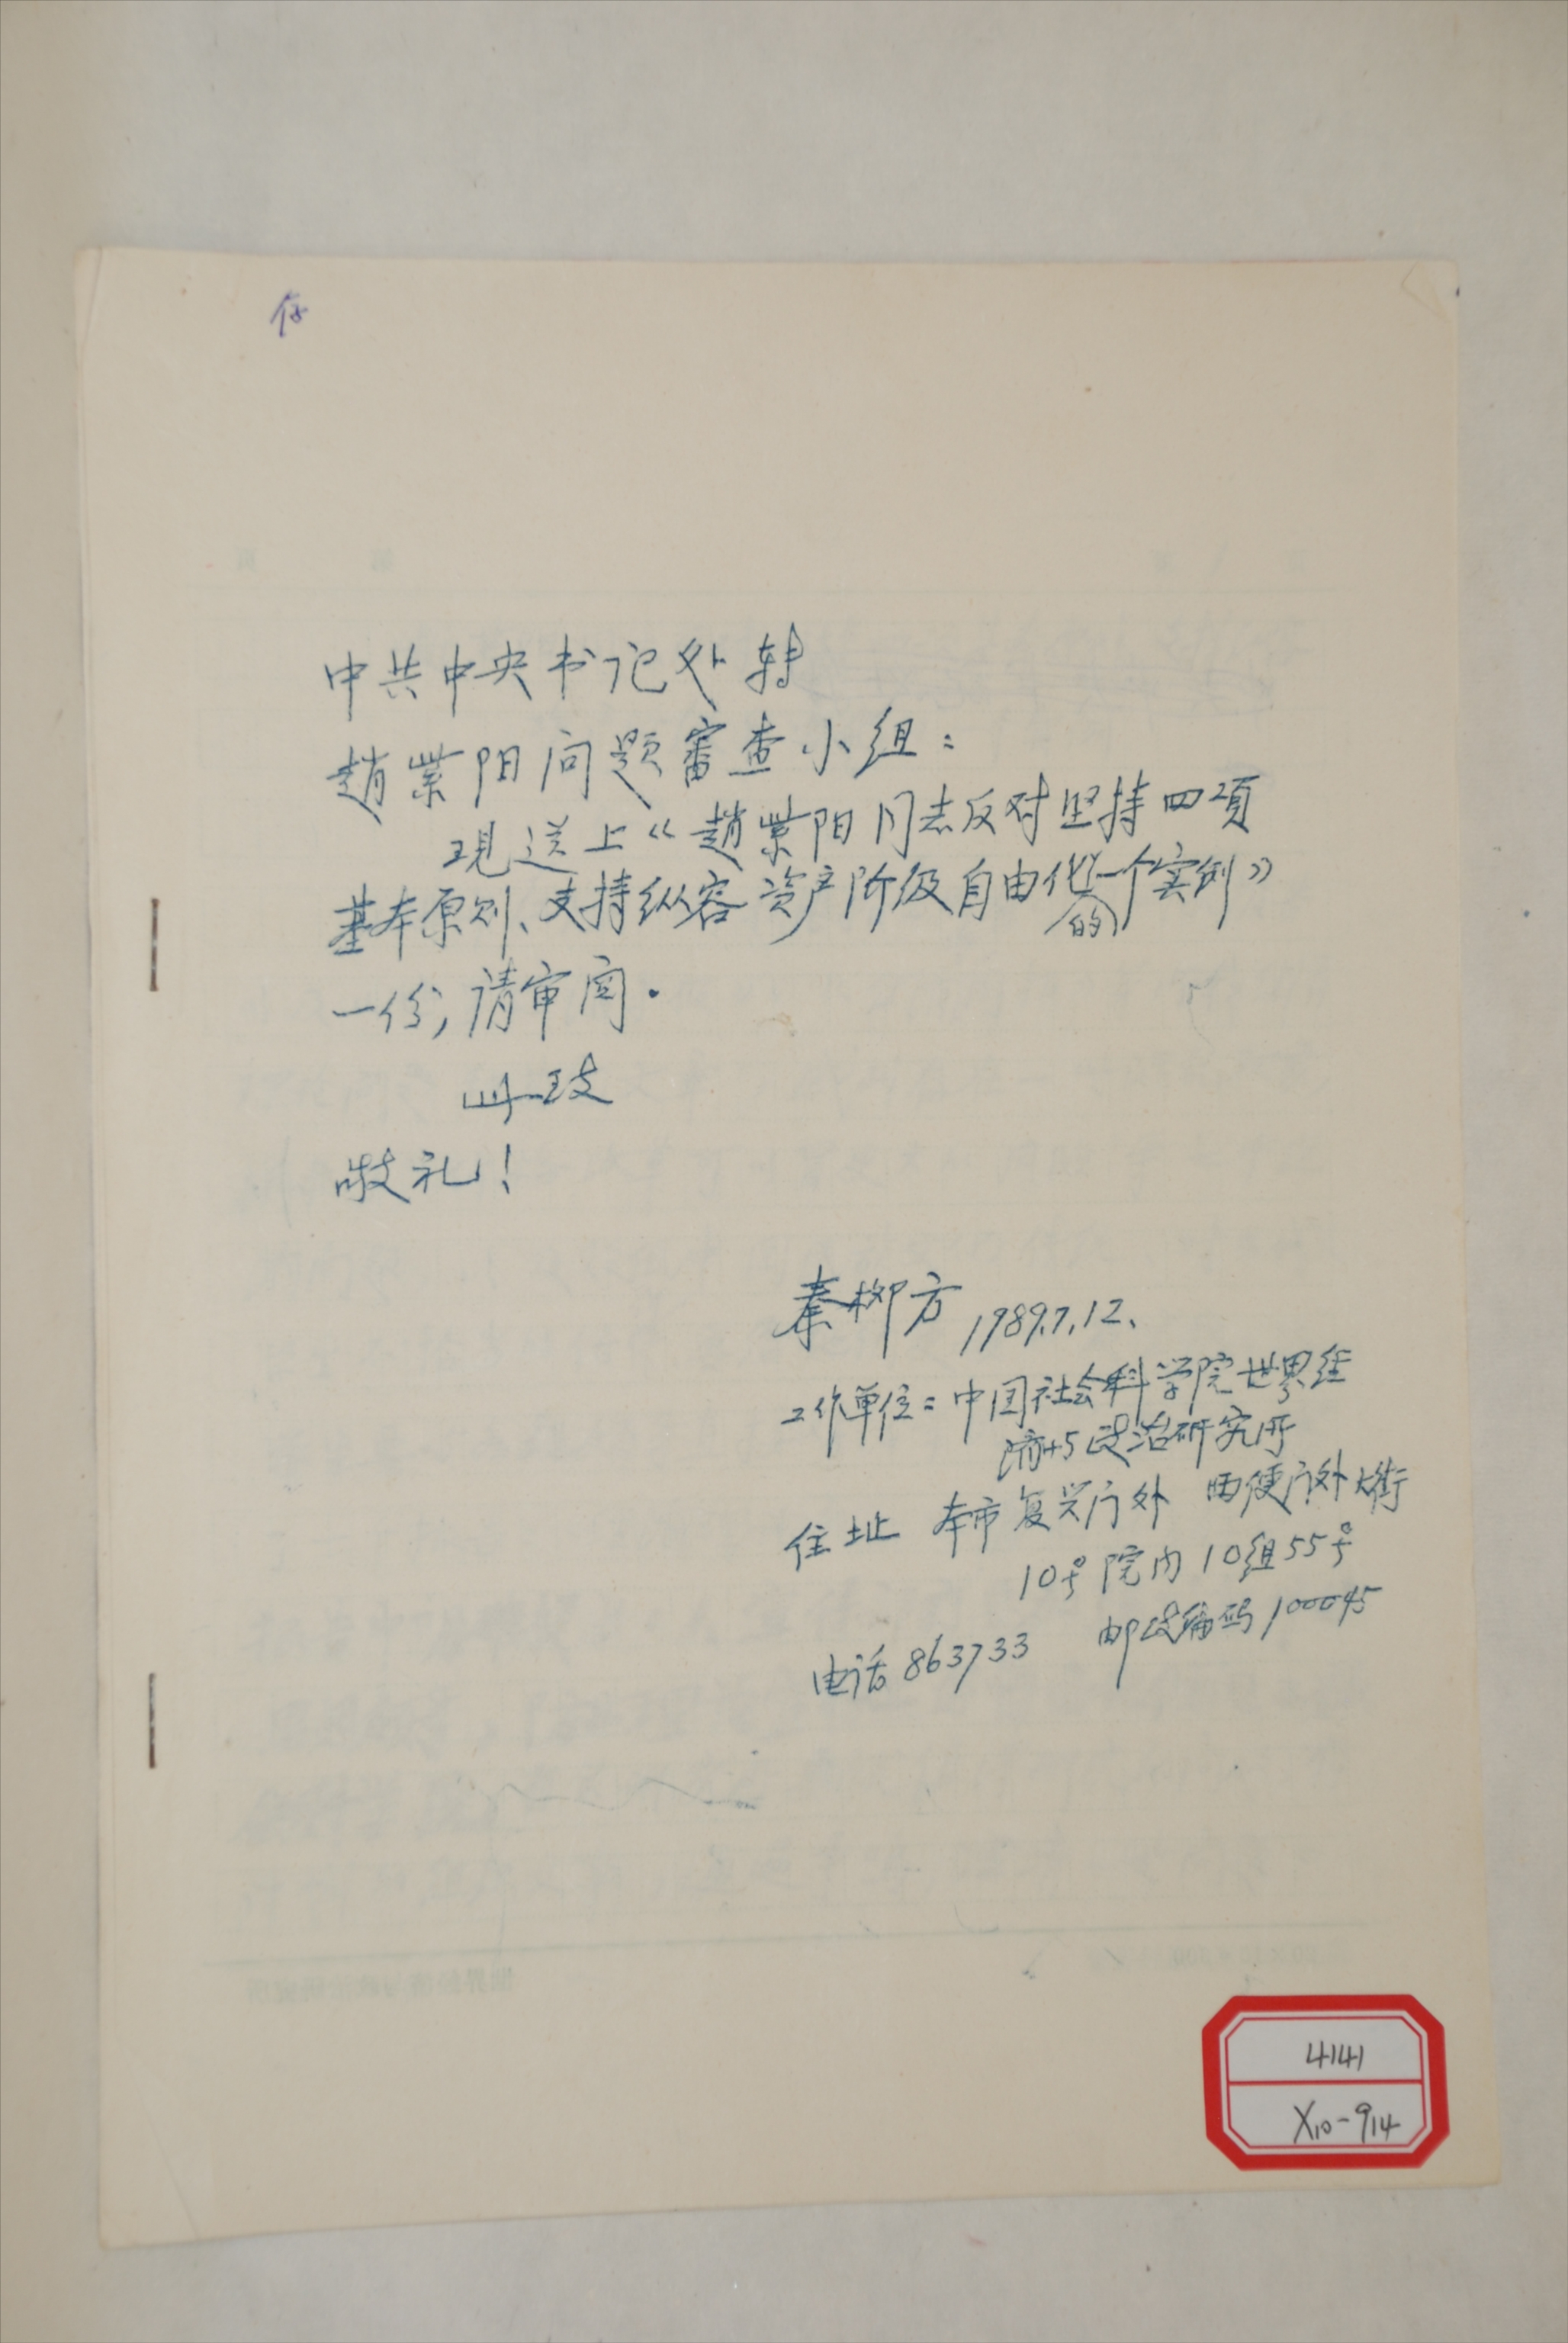 存
中共中央书记处转
趙紫阳问题審查小组：
现送上《趙紫阳同志反对坚持四项
基本原则、支持纵容资产阶级自由化的一个实例》
一份，请审阅.
此致
敬礼！
秦柳方 1989.7.12、
工作单位：中国社会科学院世界经
济与政治研究所
住址 本市复兴门外 西便门外大街
10号院内10组55号
电话863733 邮政编码100045
4141
X10-914